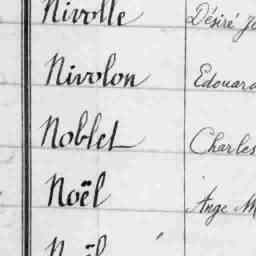 Nivolle Désiré
Nivolon Edouard
Noblet Charles
Noël Ange
Noël